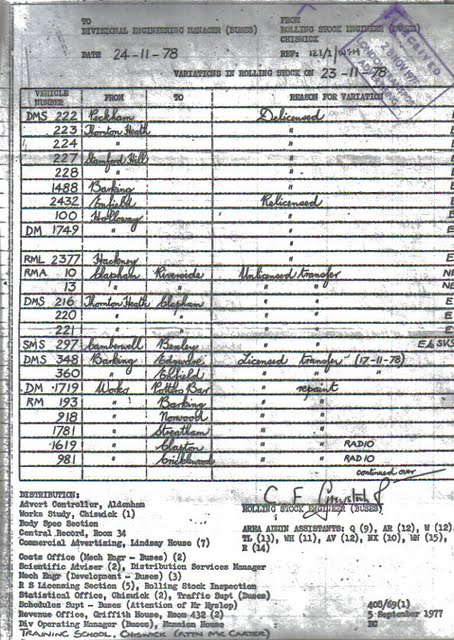 TO FROM
DIVISIONAL ENGINEERING MANAGER (BUSES) ROLLING STOCK ENGINEER (BUSES)
CHISWICK
DATE 24-11-78 REF:
RECEIVED
28 NOV 1978
VARIATIONS IN ROLLING STOCK ON 23-11-78
VEHICLE NUMBER FROM TO REASON FOR VARIATION
DMS 222 Peckham Delicensed E
223 Thornton Heath " E
224 " " E
227 Stamford Hill " E
228 " " E
1488 Barking " E
2432 Enfield Relicensed E
100 Holloway " E
DM 1749 " " E
RML 2377 Hackney " E
RMA 10 Clapham Riverside Unlicensed transfer NE
13 " " " " NE
DMS 216 Thornton Heath Clapham " " E
220 " " " " E
221 " " " " E
SMS 297 Camberwell Bexley " " EA SKS
DMS 348 Barking Edgware Licensed transfer (17-11-78)
360 " Enfield " " "
DM 1719 Works Potters Bar " repaint
RM 193 " Barking " "
918 " Norwood " "
1781 " Streatham " "
1619 " Clapton " " RADIO
981 " Cricklewood " " RADIO
continued over
DISTRIBUTION:
Advert Controller, Aldenham
Works Study, Chiswick (1)
Body Spec Section
Central Record, Room 34
Commercial Advertising, Lindsay House (7)
Costs Office (Mech Engr - Buses) (2)
Scientific Adviser (2), Distribution Services Manager
Mech Engr (Development - Buses) (3)
R S Licensing Section (5), Rolling Stock Inspection
Statistical Office, Chiswick (2), Traffic Supt (Buses)
Schedules Supt - Buses (Attention of Mr Hyslop)
Revenue Office, Griffith House, Room 432 (2)
Div Operating Manager (Buses), Mansion House
TRAINING SCHOOL, CHISWICK (ATTN MR CARTER)
ROLLING STOCK ENGINEER (BUSES)
AREA ADMIN ASSISTANTS: Q (9), AR (12), W (12)
TL (13), WH (11), AV (12), NX (10), WN (15),
R (14)
408/69(1)
5 September 1977